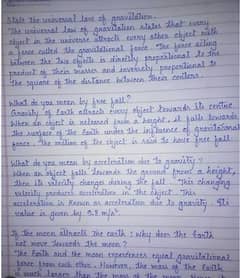 State the universal law of gravitation.
The universal law of gravitation states that every
object in the universe attracts every other object with
a force called the gravitational force. The force acting
between the two objects is directly proportional to the
product of their masses and inversely proportional to
the square of the distance between their centers.
What do you mean by free fall?
Gravity of Earth attracts every object towards its centre.
When an object is released from a height, it falls towards
the surface of the Earth under the influence of gravitational
force. The motion of the object is said to have free fall.
What do you mean by acceleration due to gravity?
When an object falls towards the ground from a height,
then its velocity changes during the fall. This changing
velocity produces acceleration in the object. This
acceleration is known as acceleration due to gravity. Its
value is given by 9.8 m/s².
If the moon attracts the earth, why does the earth
not move towards the moon?
The Earth and the moon experiences equal gravitational
force from each other. However, the mass of the Earth
is much larger than the mass of the moon.